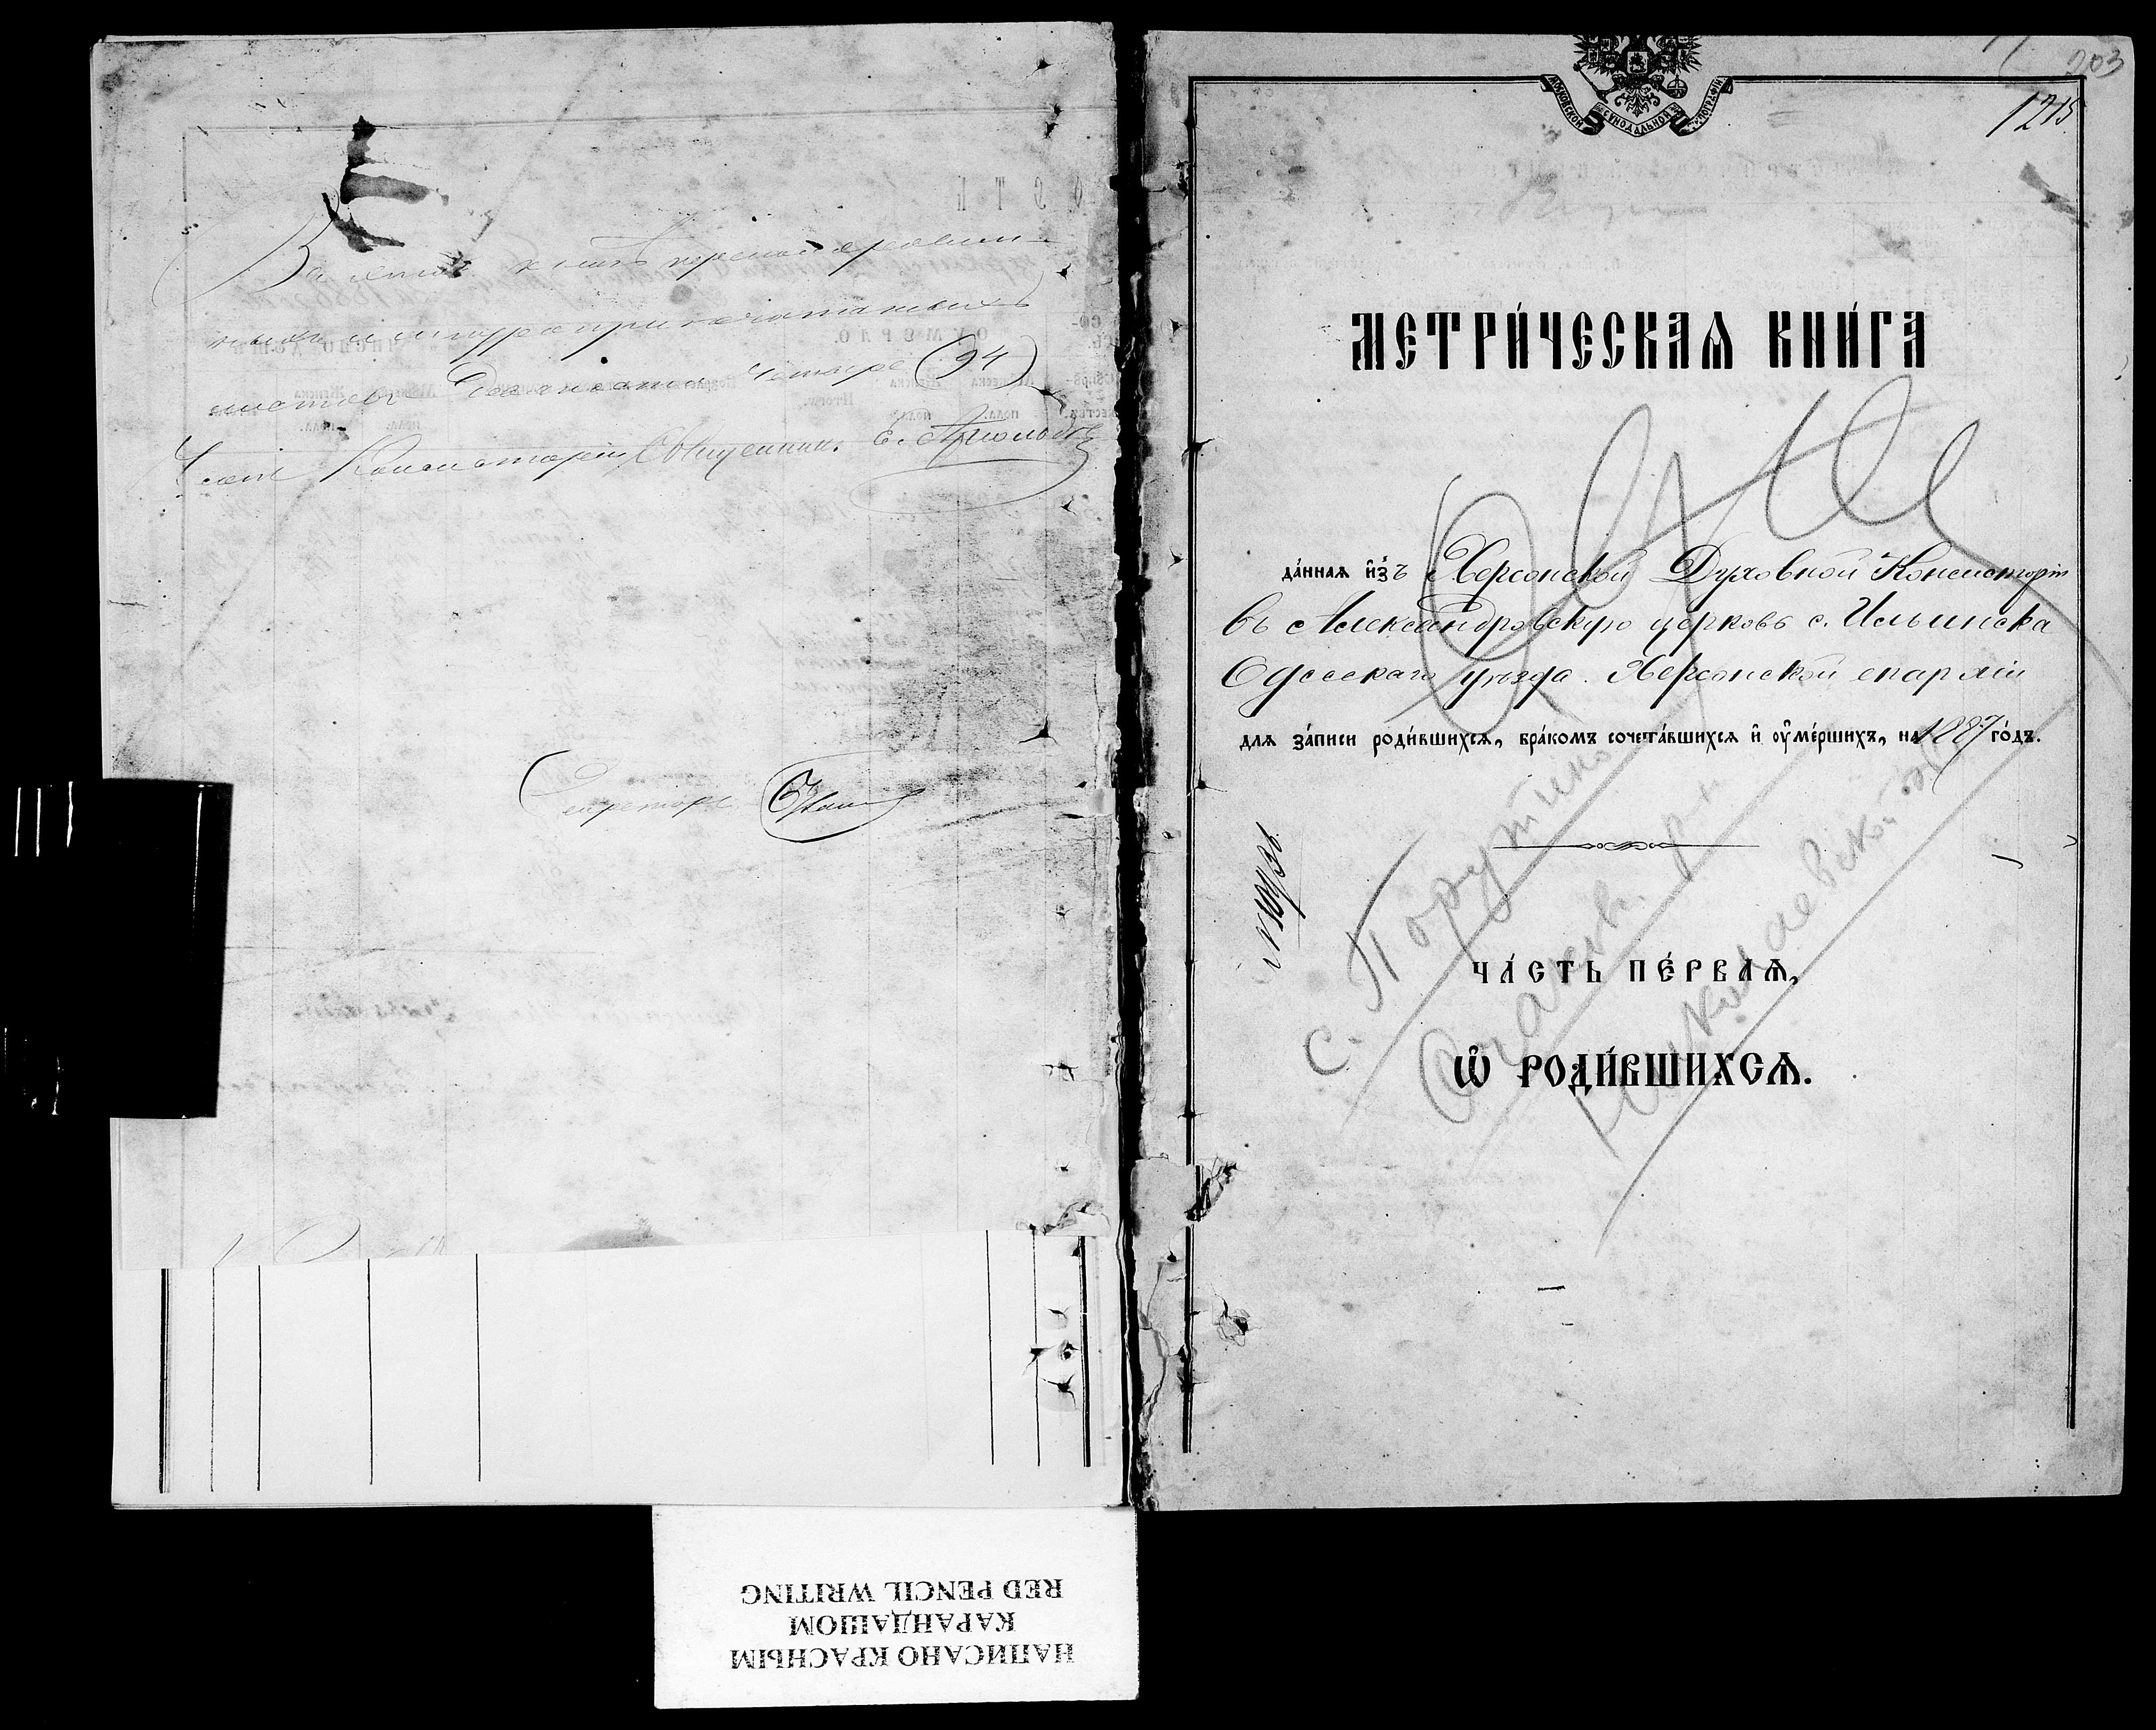 Въ этой книгѣ
прошнурованныхъ
листовъ девяносто четыре (94)
Членъ Консисторіи Священникъ
Секретарь
203
1215
МОСКОВСКОЙ СѴНОДАЛЬНОЙ ТѴПОГРАФІИ
МЕТРИ́ЧЕСКАѦ КНИ́ГА
да́ннаѧ и҆з̾ Херсонской Духовной Консисторіи
въ Александровскую церковь с. Ильинска
Одесскаго уѣзда. Херсонской епархіи
для за́писи роди́вшихсѧ, бра́комъ сочета́вшихсѧ и҆ оу҆ме́ршихъ, на 1887 го́дъ.
ЧА́СТЬ ПЕ́РВАѦ,
Ѡ҆ РОДИ́ВШИХСѦ.
с. Порутино
Очаков. р-н
Николаевской
НАПИСАНО КРАСНЫМ
КАРАНДАШОМ
RED PENCIL WRITING